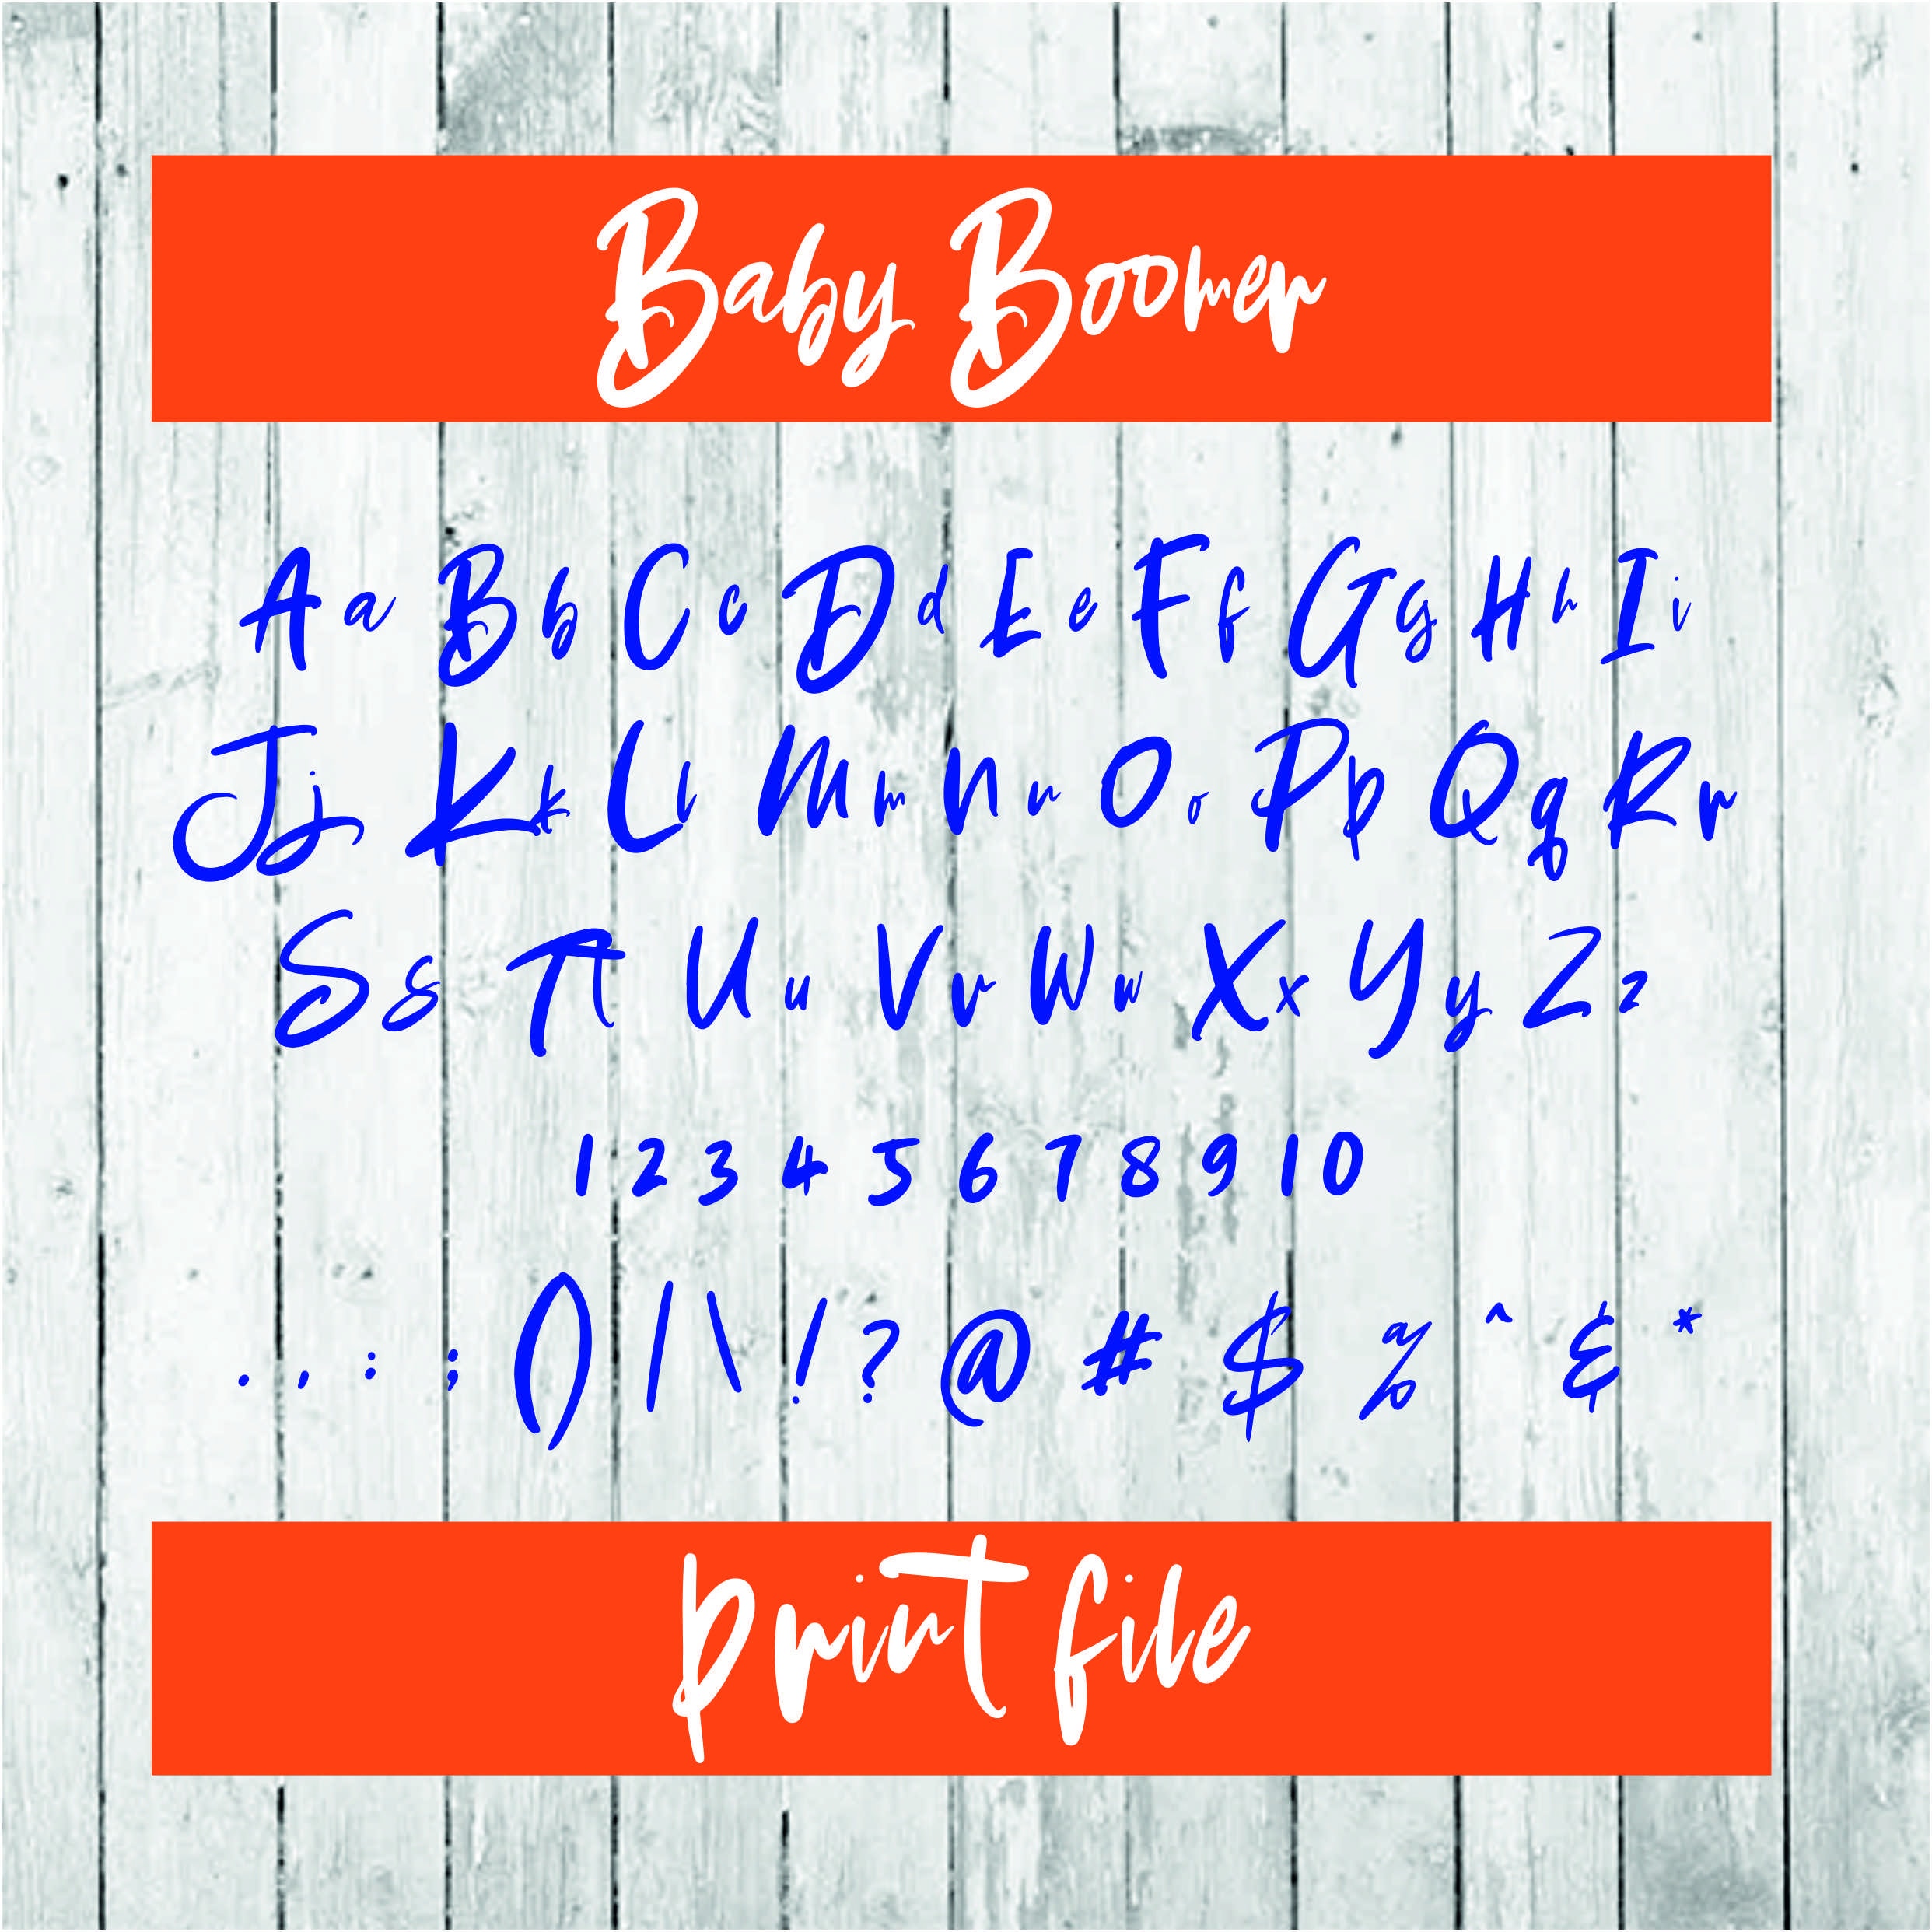 Baby Boomer
A a B b C c D d E e F f G g H h I i
J j K k L l M m N n O o P p Q q R r
S s T t U u V v W w X x Y y Z z
1 2 3 4 5 6 7 8 9 10
. , : ; () / \ ! ? @ # $ % ^ & *
print file